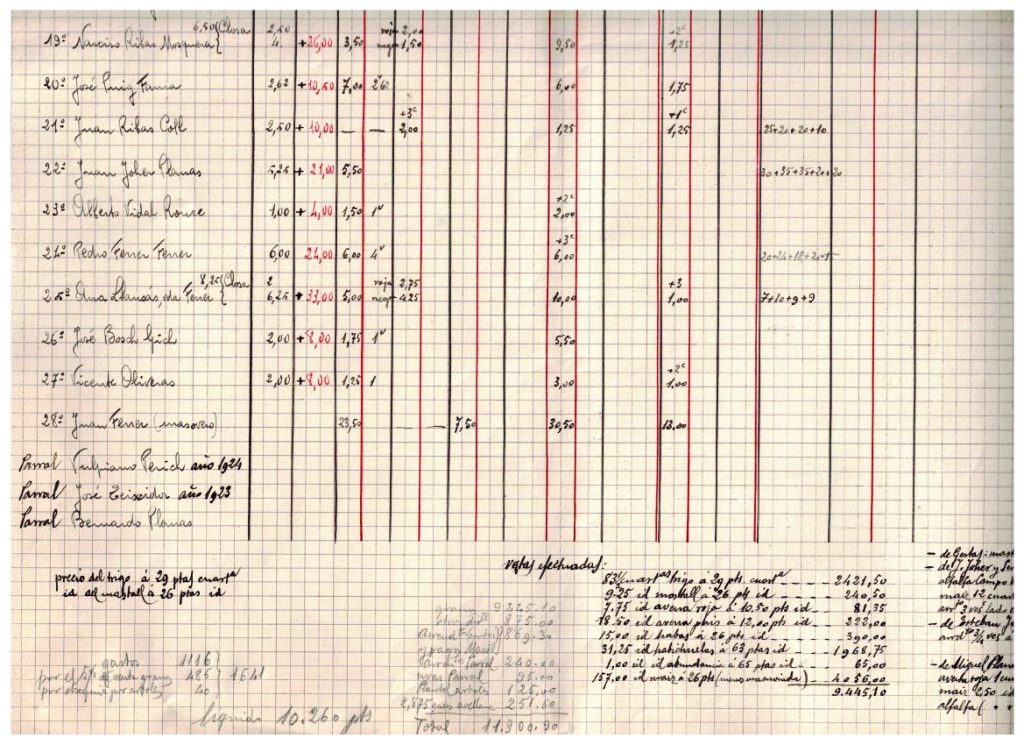 6,50 (Closa 2,50 roja 2,00 +2c
19º Narciso Ribas Mosquera { 4. +26,00 3,50 negr 1,50 9,50 1,25
20º José Puig 2,62 +10,50 7,00 6,00 1,75
+3c +1c
21º Juan Ribas Coll 2,50 +10,00 — — 2,00 1,25 1,25 25+20+20+10
22º Juan Joher Planas 5,25 + 21,00 5,50 30+35+35+20+20
+2c
23º Alberto Vidal Roure 1,00 + 4,00 1,50 1v 2,00
+3c
24º Pedro Ferrer Ferrer 6,00 24,00 6,00 4v 6,00 20+24+18+20+15
8,25 (Closa 2 roja 2,75 +3
25º Ana Llansás, vda Ferrer { 6,25 + 33,00 5,00 negr 4,25 10,00 1,00 7+10+9+9
26º José Bosch Gich 2,00 +8,00 1,75 1v 5,50
+2c
27º Vicente Oliveras 2,00 +8,00 1,25 1 3,00 1,00
28º Juan Ferrer (masovero) 23,50 — — 7,50 30,50 13,00
Parral Vulpiano Perich año 1924
Parral José Teixidor año 1923
Parral Bernardo Planas
precio del trigo á 29 ptas cuartª
id del mastall á 26 ptas id
gastos 1116
por el 5% de venta grano 485 } 1641
por obsequi por arboles 40
liquido 10.260 pts
grano 9445.10
875.00
869.30
y pagos Masov
Parral 240.00
uvas Parral 95.00
Planto arboles 125.00
2,875 avellana 251.50
Total 11.900.90
Ventas efectuadas:
83½ cuartas trigo á 29 pts. cuartª - - - - 2421,50
9.25 id mastall á 26 pts id - - - - 240,50
7.75 id avena roja á 10.50 pts id - - - - 81,35
18.50 id avena pais á 12,00 pts id - - - - 222,00
15,00 id habas á 26 pts id - - - - 390,00
31,25 id habichuelas á 63 ptas id - - - - 1968,75
1,00 id id abundancia á 65 ptas id - - - - 65,00
157,00 id maiz á 26 pts (menos masoviada) - - 4056,00
9.445,10
— de Gertas: mast
— de J. Joher y Ser
alfalfa Campo
maiz 12 cuar
arrº 3 ves lado
— de Esteban Jo
arrdº 3/4 ves á
— de Miquel Plan
avena roja 1 cu
maiz 250 id
alfalfa (